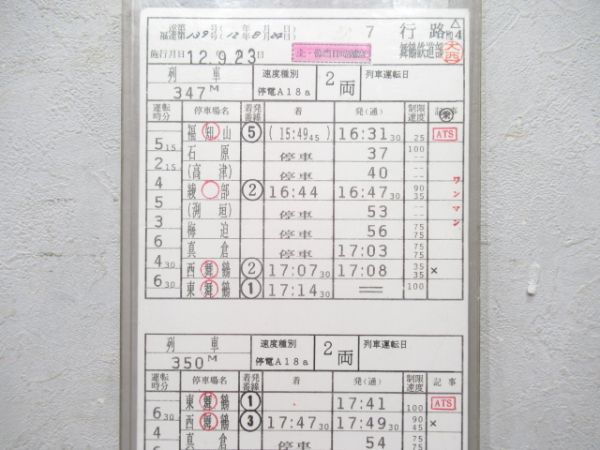 福運第139号(12年8月28日) 7 行路
施行月日 12.9.23 舞鶴鉄道部
列車 速度種別 2両 列車運転日
347M 停電A18a
運転時分 停車場名 着発番線 着 発(通) 制限速度 記事
福知山 5 (15:49 45) 16:31 30 25 ATS
5 15 石原 停車 37 100
2 15 (高津) 停車 40 --
4 綾部 2 16:44 16:47 30 90 35 ワンマン
5 (渕垣) 停車 53 --
3 梅迫 停車 56 75 75
6 真倉 停車 17:03 75 75
4 30 西舞鶴 2 17:07 30 17:08 35 35 ×
6 30 東舞鶴 1 17:14 30 = 100
列車 速度種別 2両 列車運転日
350M 停電A18a
運転時分 停車場名 着発番線 着 発(通) 制限速度 記事
東舞鶴 1 17:41 100 ATS
6 30 西舞鶴 3 17:47 30 17:49 30 90 45 ×
4 30 真倉 停車 54 75